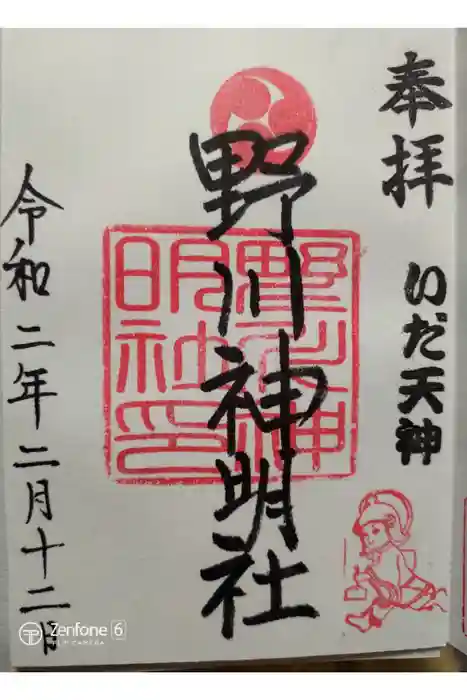 奉拝
いだ天神
野川神明社
野川神
明社印
令和二年二月十二日
Zenfone 6